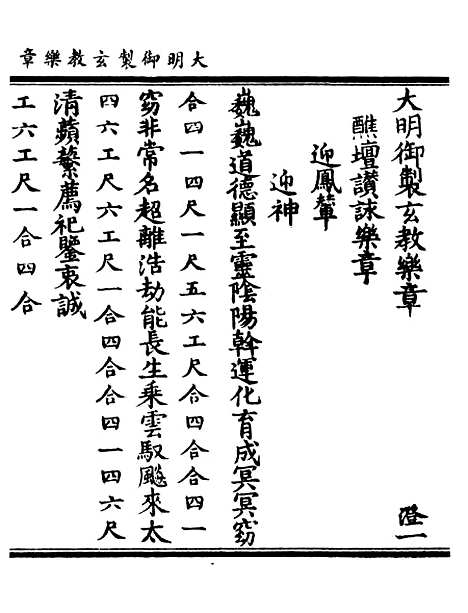 大明御製玄教樂章
大明御製玄教樂章 澄一
醮壇讚詠樂章
迎鳳輦
迎神
巍巍道德顯至靈陰陽幹運化育成冥冥窈
合四一四尺一尺五六工尺合四合合四一
窈非常名超離浩劫能長生乘雲馭飈來太
四六工尺六工尺一合四合合四一四六尺
清蘋蘩薦祀鑒衷誠
工六工尺一合四合